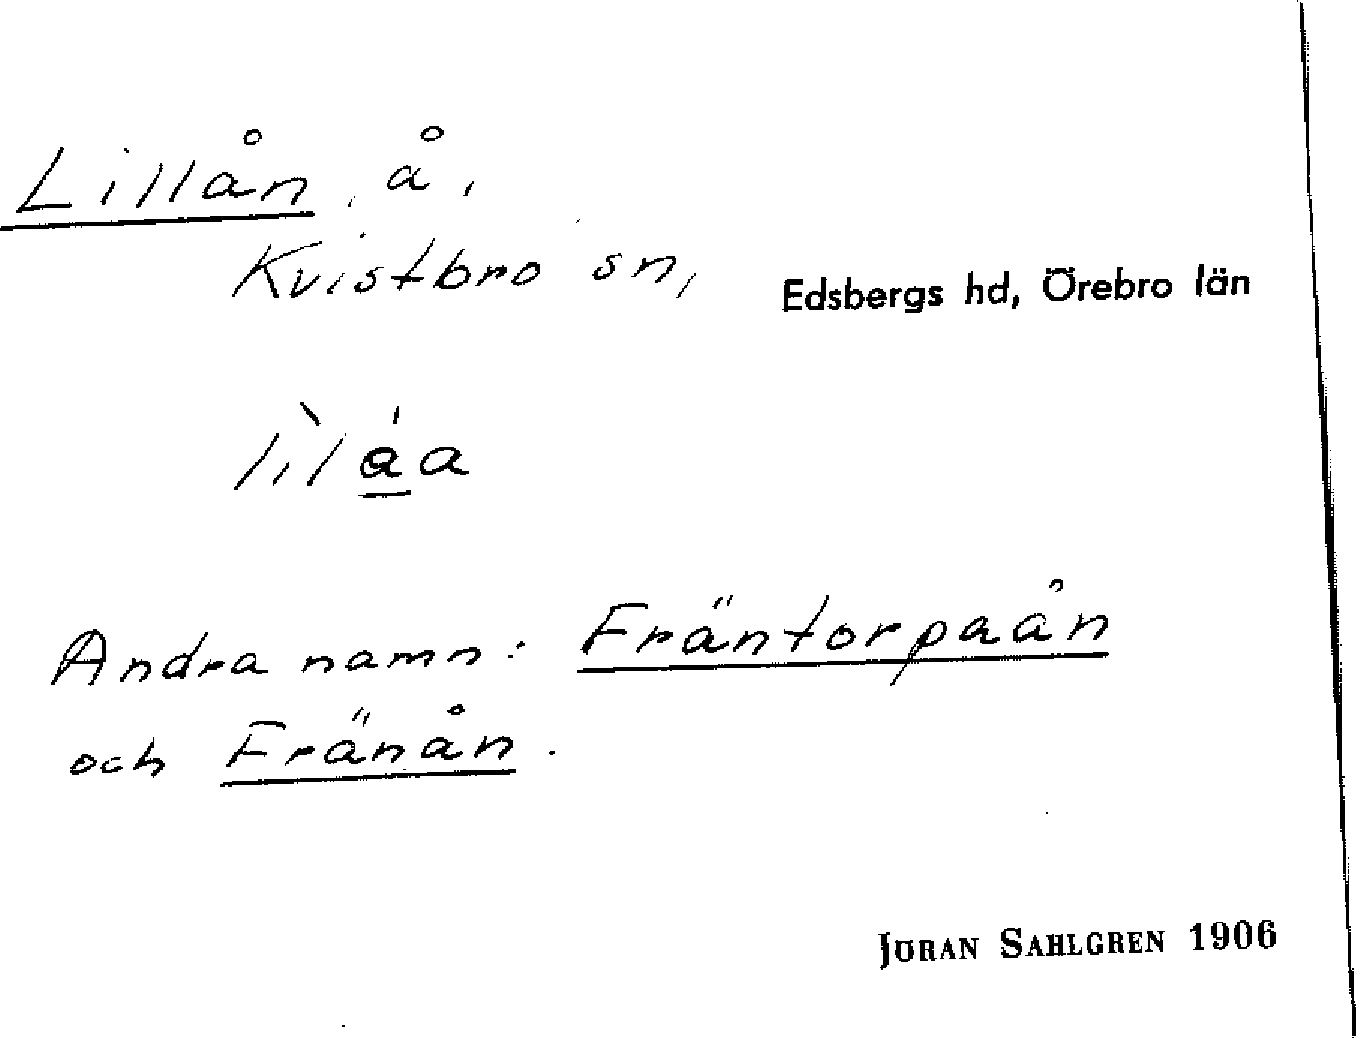 Lillån, å,
Kvistbro sn, Edsbergs hd, Örebro län
lìlåa
Andra namn: Fräntorpaån
och Fränån.
JÖRAN SAHLGREN 1906